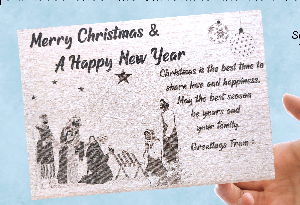 Merry Christmas &
A Happy New Year
Christmas is the best time to
share love and happiness.
May the best season
be yours and
your family.
Greetings From :